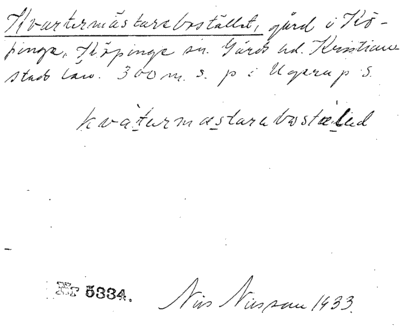 Kvartermästarebostället, gård i Kö-
pinge, Köpinge sn. Gärds hd. Kristian-
stads län. 300 m. s. p i
kvàtərmästarabostäləd
Nr 5334.
Nils Nilsson 1933.